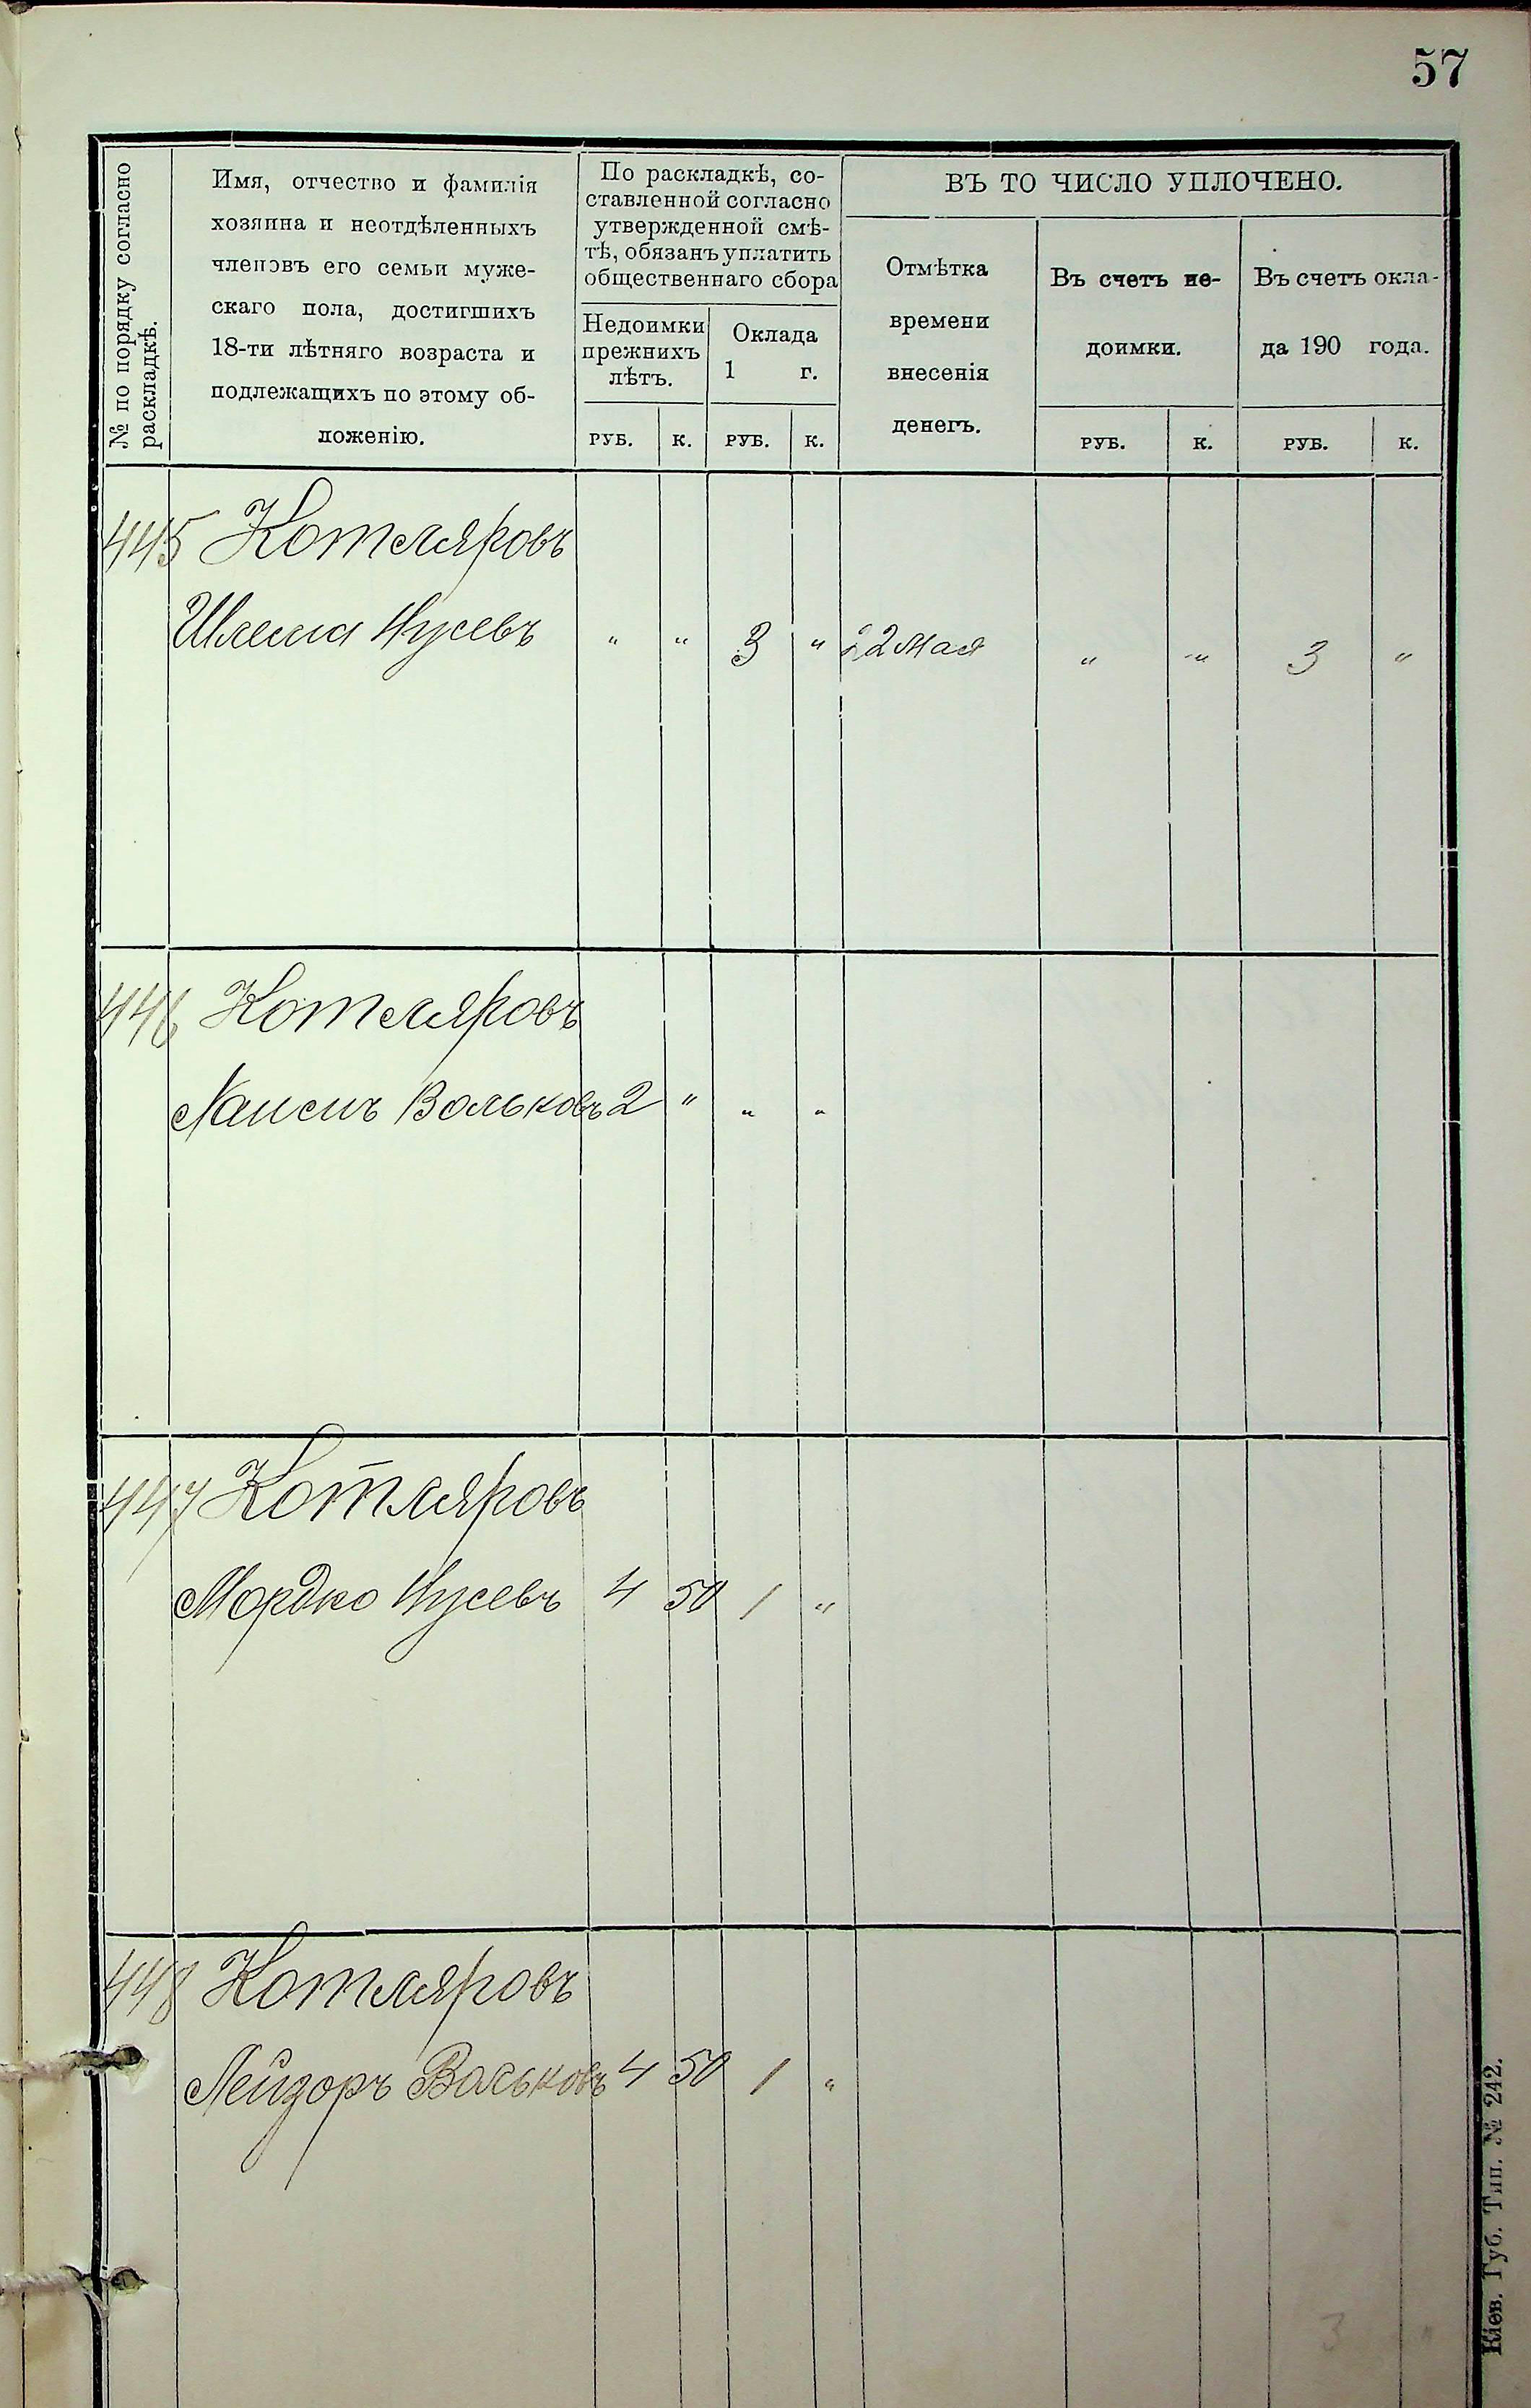 57
№ по порядку согласно
раскладкѣ.
Имя, отчество и фамилія
хозяина и неотдѣленныхъ
членовъ его семьи муже-
скаго пола, достигшихъ
18-ти лѣтняго возраста и
подлежащихъ по этому об-
ложенію.
По раскладкѣ, со-
ставленной согласно
утвержденной смѣ-
тѣ, обязанъ уплатить
общественнаго сбора
Недоимки
прежнихъ
лѣтъ.
Оклада
1 г.
РУБ. К. РУБ. К.
ВЪ ТО ЧИСЛО УПЛОЧЕНО.
Отмѣтка
времени
внесенія
денегъ.
Въ счетъ не-
доимки.
РУБ. К.
Въ счетъ окла-
да 190 года.
РУБ. К.
445 Котляровъ
Шлема Нусевъ " " 3 " 22 Мая " " 3 "
446 Котляровъ
Вольковъ 2 " " "
447 Котляровъ
Мордко Нусевъ 4 50 1 "
448 Котляровъ
Лейзоръ Вольковъ 4 50 1 "
3 "
Кіев. Губ. Тип. № 242.